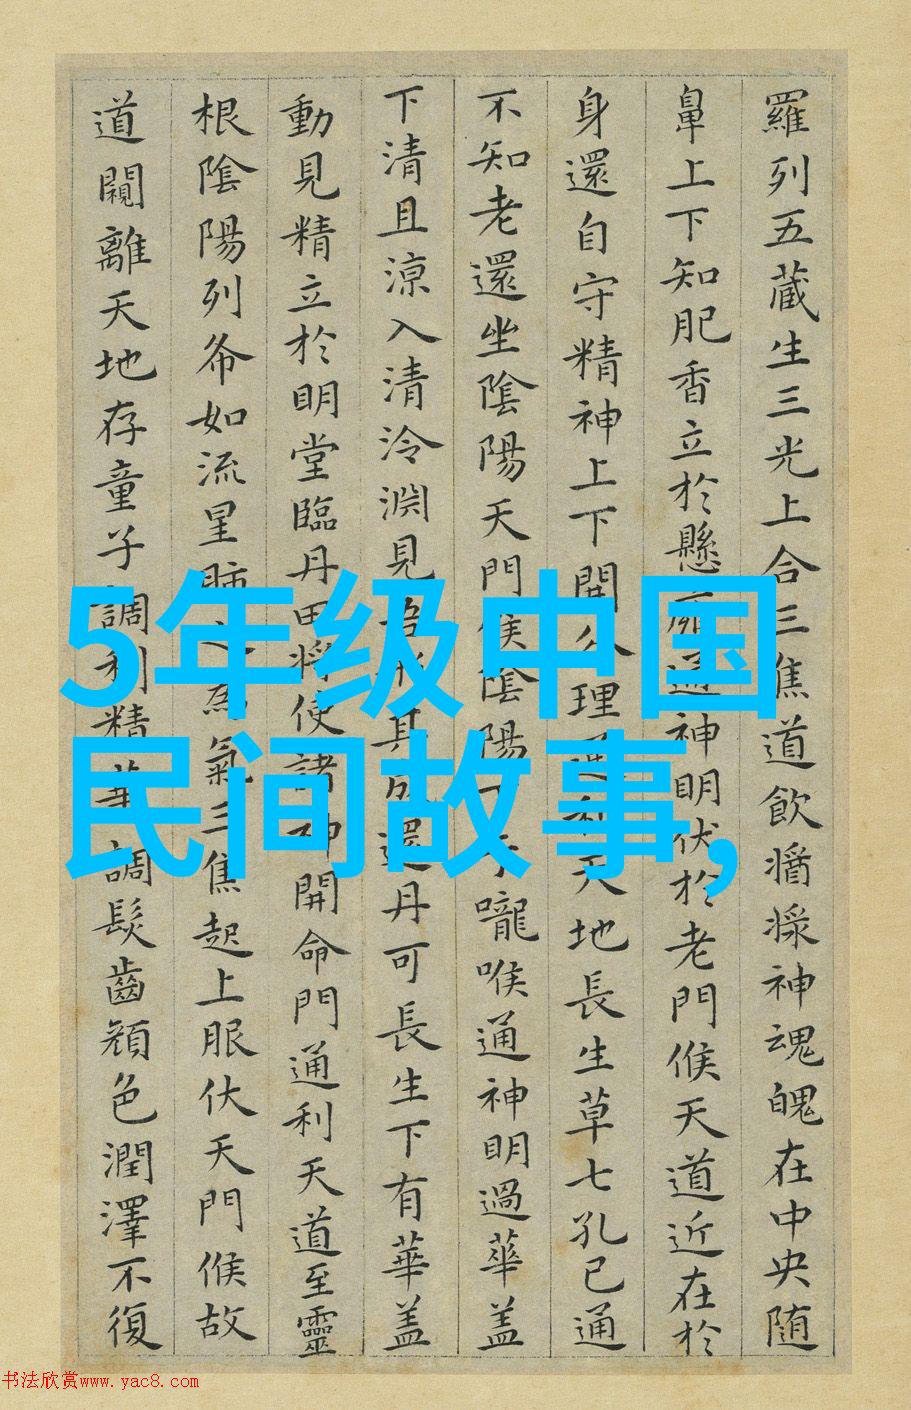 羅列五藏生三光上合三焦道飲醬漿神魂魄在中央随
鼻上下知肥香立於懸通神明伏於老門候天道近在於
身還自守精神上下開理天地長生草七孔已通
不知老還坐陰陽天門候陰陽嚨喉通神明過華盖
下清且涼入清泠渊見吾形其成還丹可長生下有華盖
動見精立於明堂臨丹田将使諸神開命門通利天道至靈
根陰陽列布如流星肺之為氣三焦起上服伏天門候故
道闚離天地存童子調利精華調髮齒顔色潤澤不復
5年级中国
民间故事,
书法欣赏www.yac8.com